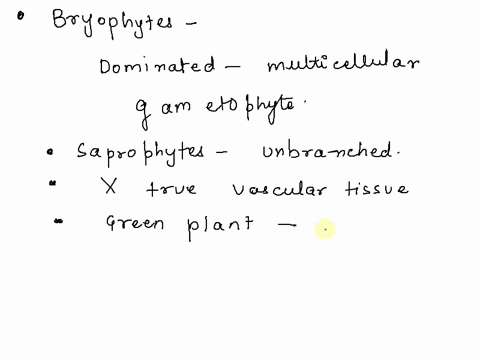 • Bryophytes -
Dominated - multicellular
gametophyte.
• Saprophytes - unbranched.
• X true vascular tissue
• Green plant -